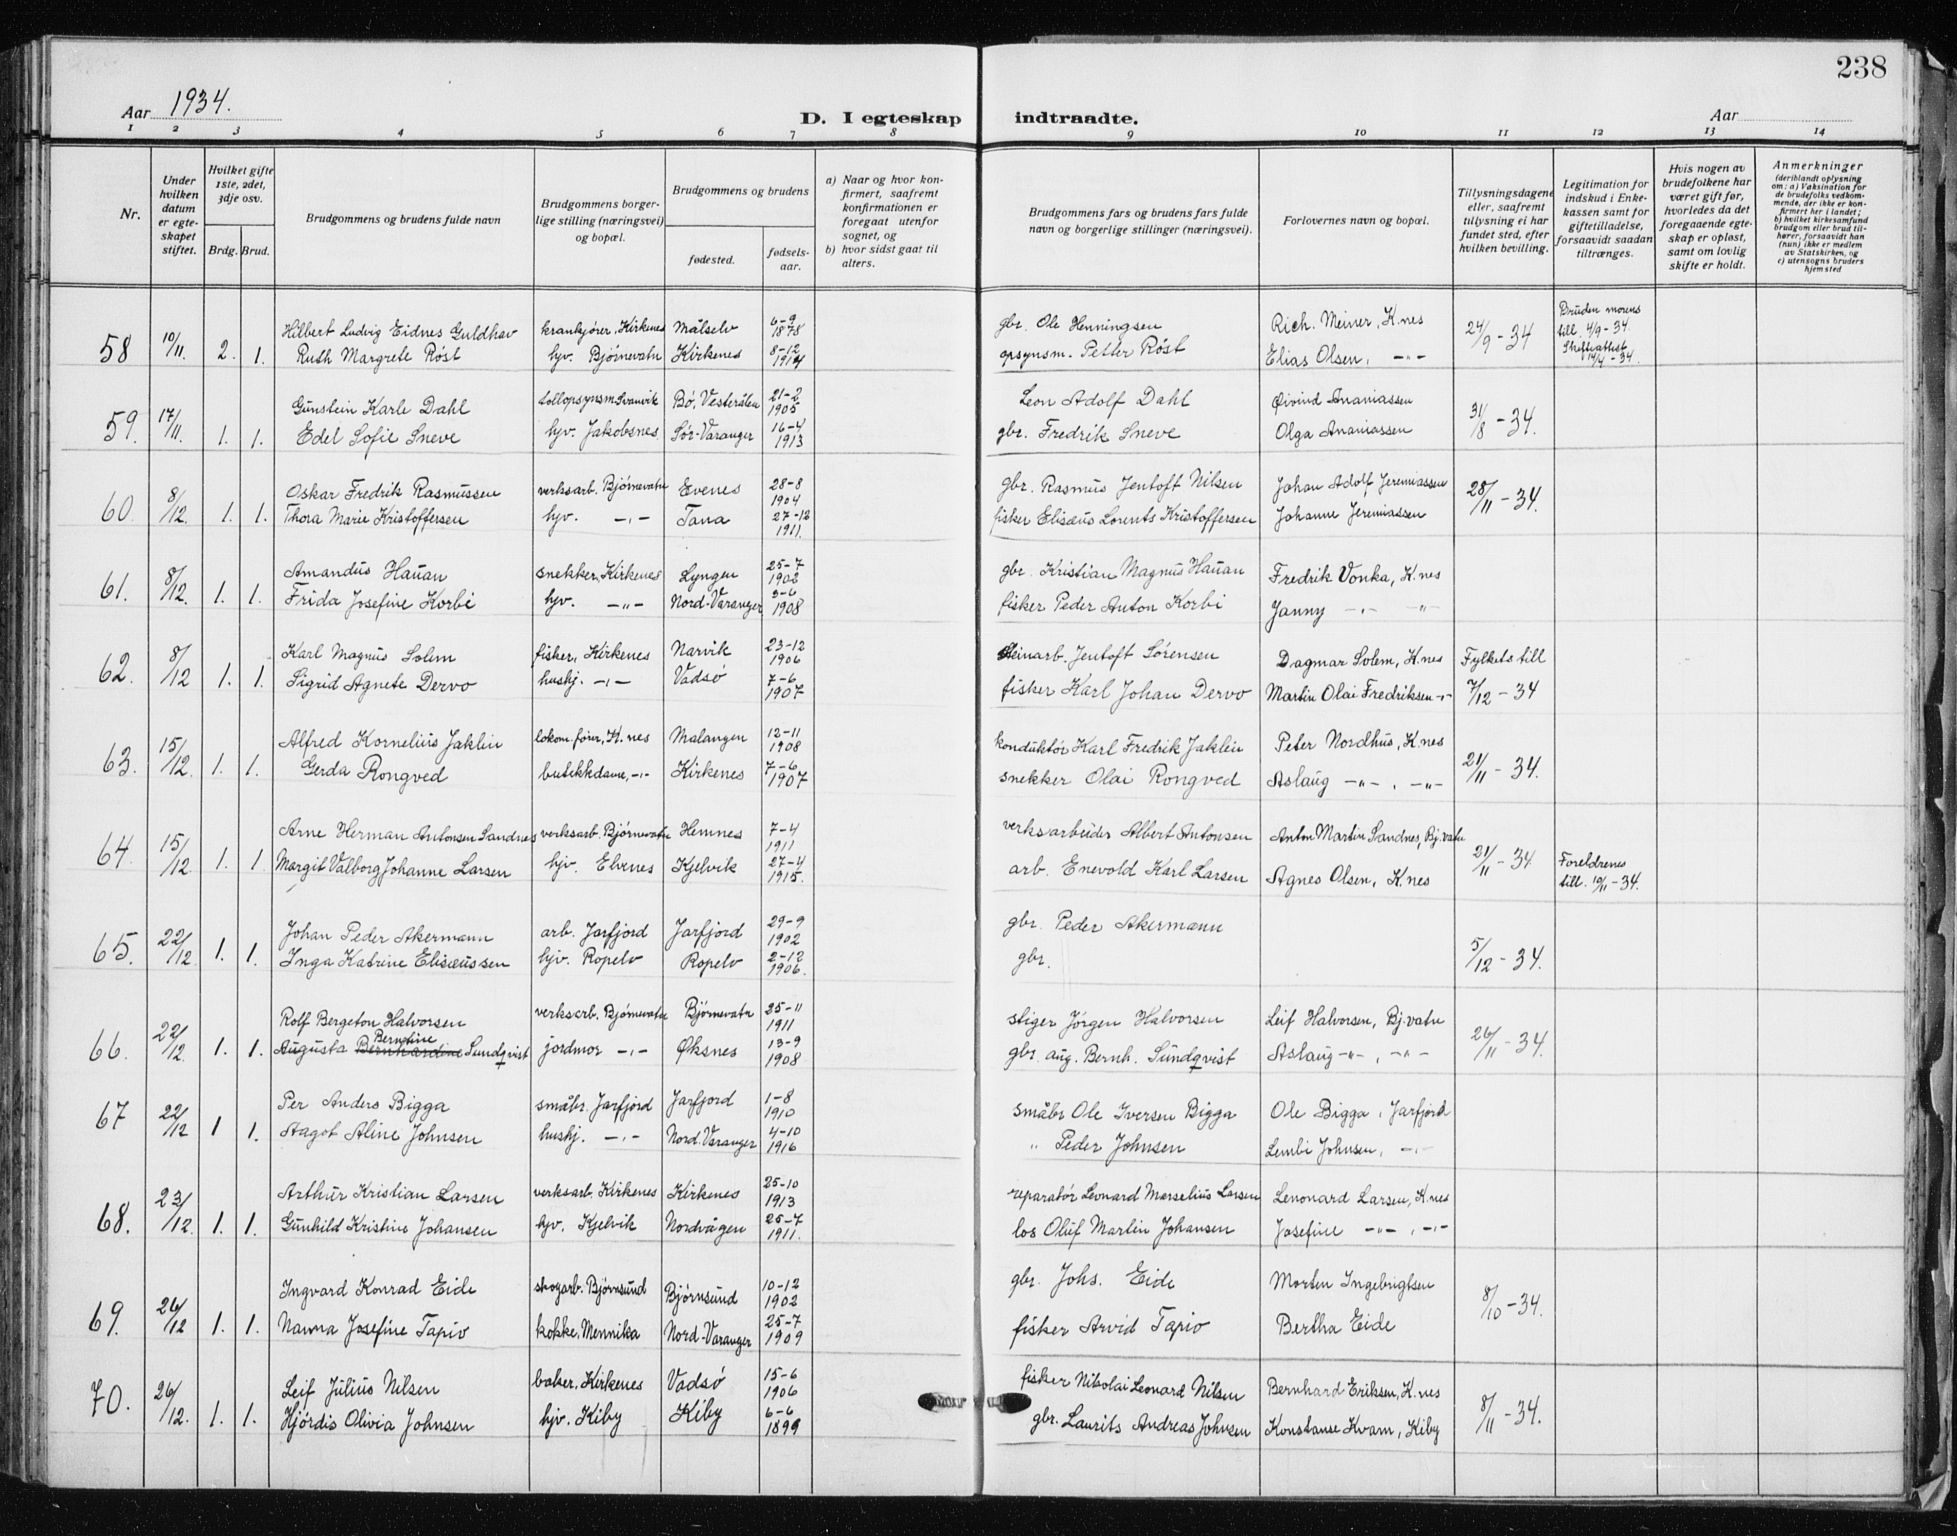 238
Aar 1934.
D. I egteskap indtraadte.
Aar
1 2 3 4 5 6 7 8 9 10 11 12 13 14
Nr.
Under hvilken datum er egteskapet stiftet.
Hvilket gifte 1ste, 2det, 3dje osv.
Brdg. Brud.
Brudgommens og brudens fulde navn
Brudgommens borgerlige stilling (næringsvei) og bopæl.
Brudgommens og brudens
fødested.
fødselsaar.
a) Naar og hvor konfirmert, saafremt konfirmationen er foregaat utenfor sognet, og
b) hvor sidst gaat til alters.
Brudgommens fars og brudens fars fulde navn og borgerlige stillinger (næringsvei).
Forlovernes navn og bopæl.
Tillysningsdagene eller, saafremt tillysning ei har fundet sted, efter hvilken bevilling.
Legitimation for indskud i Enkekassen samt for giftetilladelse, forsaavidt saadan tiltrænges.
Hvis nogen av brudefolkene har været gift før, hvorledes da det foregaaende egteskap er opløst, samt om lovlig skifte er holdt.
Anmerkninger (deriblandt oplysning om: a) Vaksination for de brudefolks vedkommende, der ikke er konfirmert her i landet; b) hvilket kirkesamfund brudgom eller brud tilhører, forsaavidt han (hun) ikke er medlem av Statskirken, og c) utensogns bruders hjemsted
58 10/11 2. 1. Hilbert Ludvig Eidnes Guldhav krankjører, Kirkenes Målselv 6-9 1878 gbr. Ole Henningsen Rich. Meiner, K.nes 24/9-34 Bruden morens till 4/9-34.
Ruth Margrete Røst hjv. Bjørnevatn Kirkenes 8-12 1914 opsynsm. Petter Røst Elias Olsen, -"-
59. 17/11. 1. 1. Gunstein Karle Dahl tollopsynsm Svanvik Bø, Vesterålen 21-2 1905 Leon Adolf Dahl Øivind Ananiassen 31/8-34.
Edel Sofie Sneve hjv. Jakobsnes Sør-Varanger 16-4 1913 gbr. Fredrik Sneve Olga Ananiassen
60. 8/12. 1. 1. Oskar Fredrik Rasmussen verksarb. Bjørnevatn Evenes 28-8 1904 gbr. Rasmus Jentoft Nilsen Johan Adolf Jeremiassen 28/11-34.
Thora Marie Kristoffersen hjv. -"- Tana 27-12 1911. fisker Elisæus Lorents Kristoffersen Johanne Jeremiassen
61. 8/12. 1. 1. Amandus Hauan snekker, Kirkenes Lyngen 25-7 1902 gbr. Kristian Magnus Hauan Fredrik Vonka, K.nes
Frida Josefine Korbi hjv. -"- Nord-Varanger 3-6 1908 fisker Peder Anton Korbi Janny -"- -"-
62. 8/12 1. 1. Karl Magnus Solem fisker, Kirkenes Narvik 23-12 1906 Steinarb. Jentoft Sørensen Dagmar Solem, K.nes Fylkets till 7/12-34
Sigrid Agnete Dervo hushj. -"- Vadsø 7-6 1907 fisker Karl Johan Dervo Martin Olai Fredriksen -"-
63. 15/12. 1. 1. Alfred Kornelius Jaklin lokom.fører, K.nes Malangen 12-11 1908 konduktør Karl Fredrik Jaklin Peter Nordhus, K.nes 21/11-34.
Gerda Rongved butikkdame, -"- Kirkenes 7-6 1907 snekker Olai Rongved Aslaug -"-, -"-
64. 15/12. 1. 1 Arne Herman Antonsen Sandnes verksarb. Bjørnevatn Hemnes 7-4 1911 verksarbeider Albert Antonsen Anton Martin Sandnes, Bj.vatn 21/11-34 Foreldrenes till. 10/11-34.
Margit Valborg Johanne Larsen hjv. Elvenes Kjelvik 27-4 1915. arb. Enevold Karl Larsen Agnes Olsen, K.nes
65. 22/12. 1. 1. Johan Peder Akermann arb. Jarfjord Jarfjord 29-9 1902 gbr. Peder Akermann 5/12-34.
Inga Katrine Elisæussen hjv. Ropelv Ropelv 2-12 1906. gbr.
66. 22/12. 1. 1. Rolf Bergeton Halvorsen verksarb. Bjørnevatn Bjørnevatn 25-11 1911 stiger Jørgen Halvorsen Leif Halvorsen, Bj.vatn 26/11-34.
Augusta Bernhardine Berntine Sundqvist jordmor -"- Øksnes 13-9 1908 gbr. Aug. Bernh. Sundqvist Aslaug -"-, -"-
67 22/12 1 1. Per Anders Bigga småbr. Jarfjord Jarfjord 1-8 1910 småbr Ole Iversen Bigga Ole Bigga, Jarfjord
Aagot Aline Johnsen hushj. -"- Nord-Varanger 4-10 1916 " Peder Johnsen Lembi Johnsen, -"-
68. 23/12. 1. 1. Arthur Kristian Larsen verksarb. Kirkenes Kirkenes 25-10 1913 reparatør Leonard Marselius Larsen Lenonard Larsen, K.nes
Gunhild Kristine Johansen hjv. Kjelvik Nordvågen 25-7 1911. los Oluf Martin Johansen Josefine -"-, -"-
69. 26/12 1. 1. Ingvard Konrad Eide skogarb. Bjørnsund Bjørnsund 10-12 1902 gbr. Johs. Eide Morten Ingebrigtsen 8/10-34.
Nanna Josefine Tapio kokke, Mennika Nord-Varanger 25-7 1909 fisker Arvid Tapio Bertha Eide
70. 26/12. 1. 1. Leif Julius Nilsen baker, Kirkenes Vadsø 15-6 1906 fisker Nikolai Leonard Nilsen Bernhard Eriksen, K.nes 8/11-34.
Hjørdis Olivia Johnsen hjv. Kiby Kiby 6-6 1899 gbr. Laurits Andreas Johnsen Konstanse Kvam, Kiby